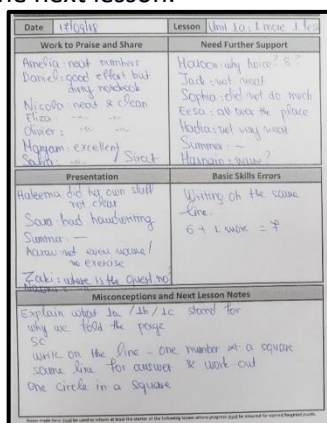 the next lesson.
Date 17/09/18 Lesson Unit 1a: 1 more 1 less
Work to Praise and Share
Amelia: neat numbers
Daniel: good effort but
dirty notebook
Nicola: neat & clean
Eliza: -"- -"-
Olivier: -"- -"-
Maryam: excellent
Safia: Sirat
Need Further Support
Haroon: why twice? 8?
Jack: not neat
Sophia: did not do much
Eesa: all over the place
Hadia: not very neat
Summer: —
Hasnain:
Presentation
Haleema did her own stuff
not clear
Sara: bad handwriting
Summer: —
not even name/
no exercise
Zaki: where is the quest no?
Basic Skills Errors
Writing on the same
line.
6 + 1 more = 7
Misconceptions and Next Lesson Notes
Explain what 1a / 1b / 1c stand for
why we fold the page
SC
write on the line - one number at a square
same line for answer & work-out
one circle in a square